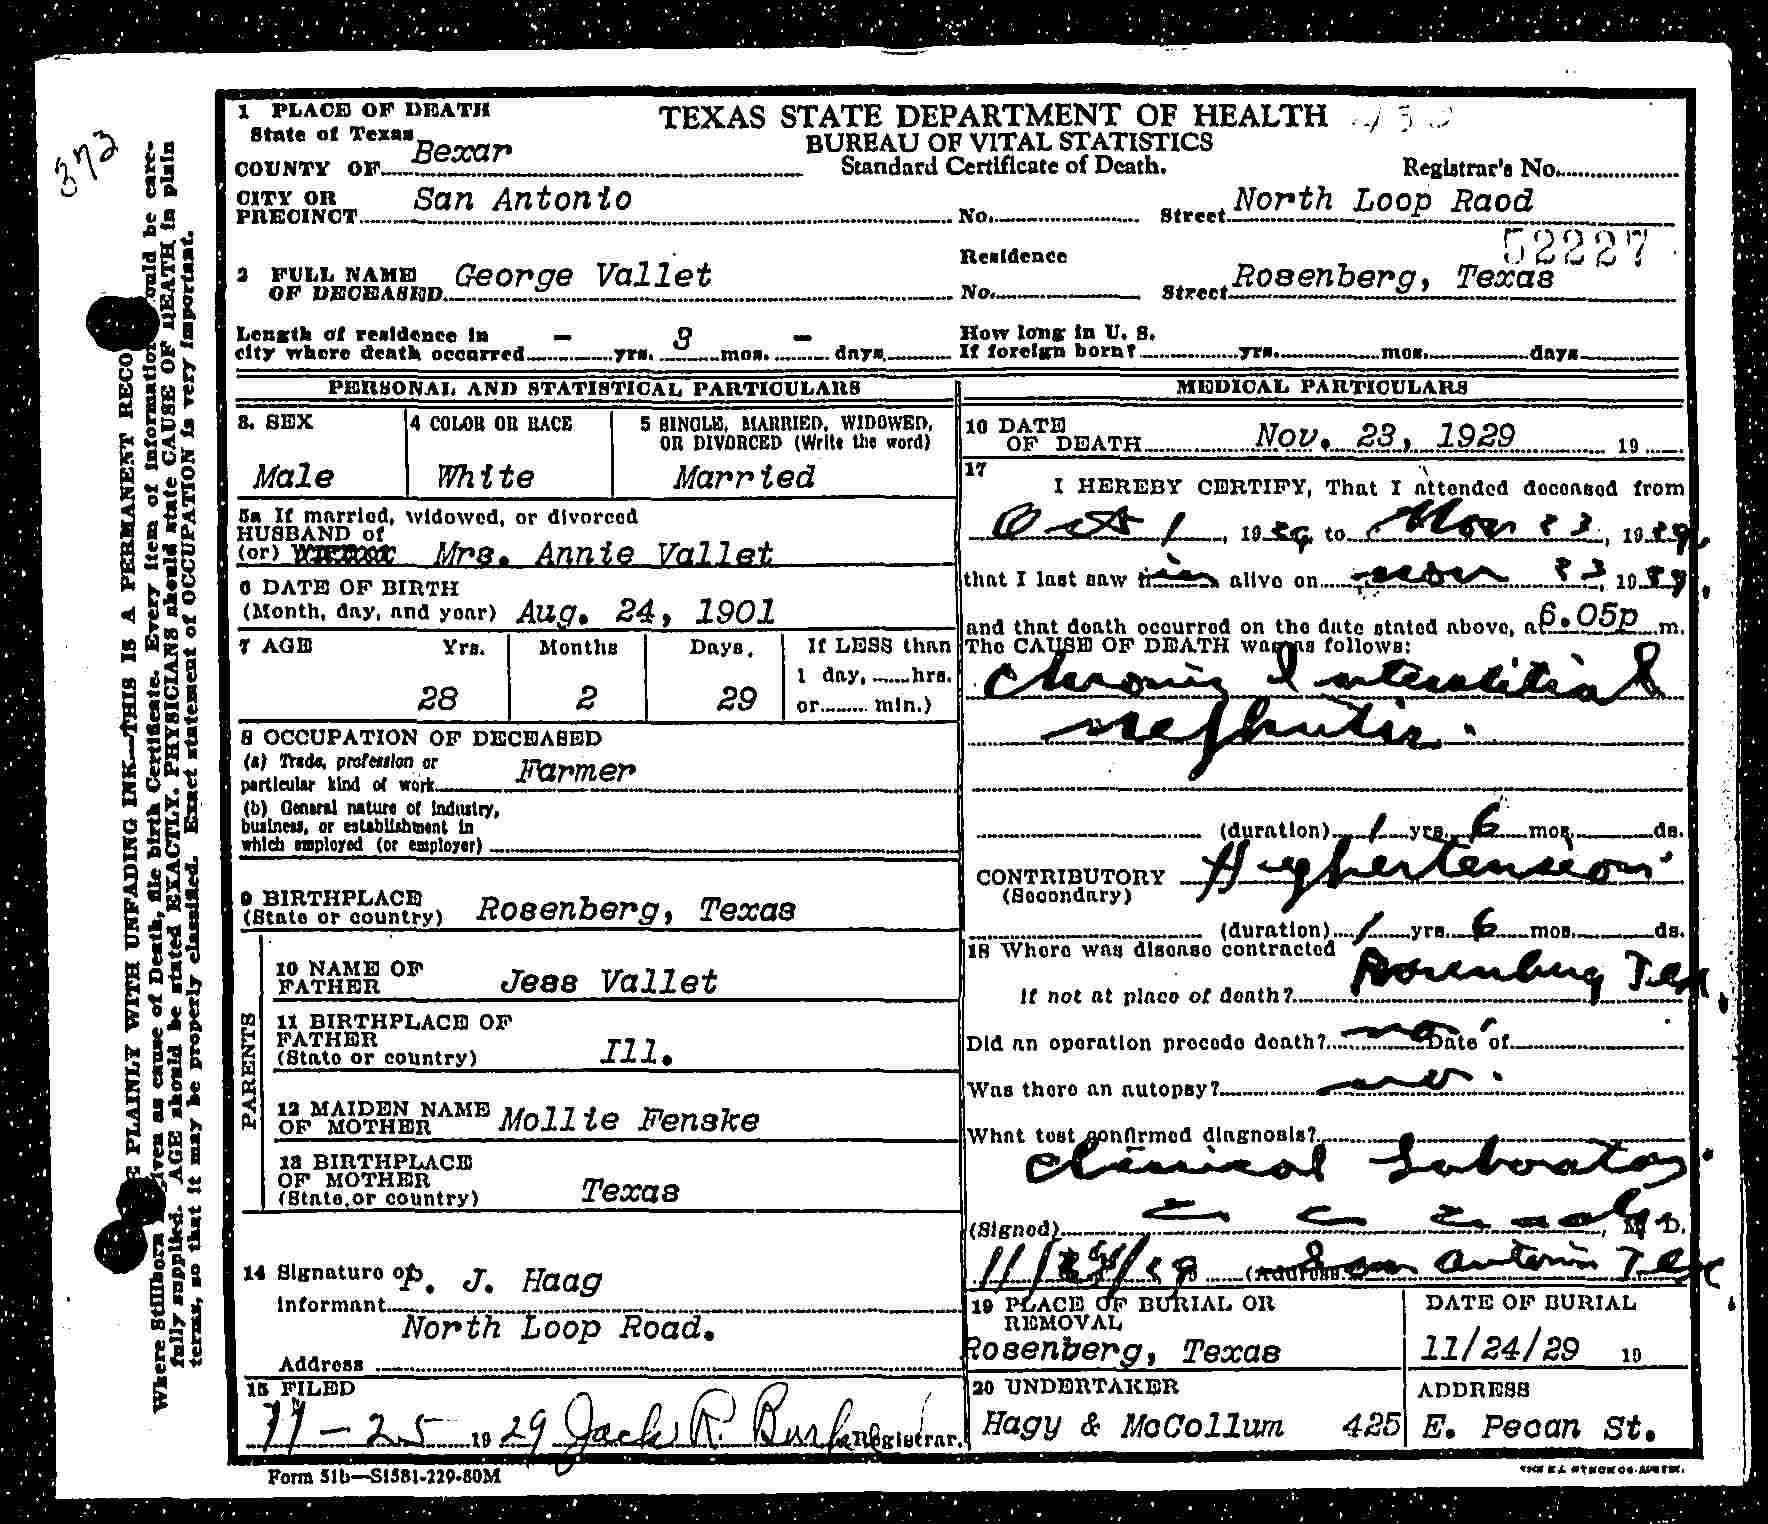 373
WRITE PLAINLY WITH UNFADING INK—THIS IS A PERMANENT RECO
Where Stillborn given as cause of Death, file birth Certificate. Every item of information should be care-
fully supplied. AGE should be stated EXACTLY. PHYSICIANS should state CAUSE OF DEATH in plain
terms, so that it may be properly classified. Exact statement of OCCUPATION is very important.
TEXAS STATE DEPARTMENT OF HEALTH
BUREAU OF VITAL STATISTICS
Standard Certificate of Death.
Registrar's No.
1 PLACE OF DEATH
State of Texas
COUNTY OF Bexar
CITY OR
PRECINCT San Antonio No. Street North Loop Raod
52227
2 FULL NAME
OF DECEASED George Vallet
Residence
No. Street Rosenberg, Texas
Length of residence in
city where death occurred - yrs. 3 mos. - days
How long in U. S.
If foreign born? yrs. mos. days
PERSONAL AND STATISTICAL PARTICULARS
3. SEX
Male
4 COLOR OR RACE
White
5 SINGLE, MARRIED, WIDOWED,
OR DIVORCED (Write the word)
Married
5a If married, widowed, or divorced
HUSBAND of
(or) Mrs. Annie Vallet
6 DATE OF BIRTH
(Month, day, and year) Aug. 24, 1901
7 AGE Yrs. Months Days. If LESS than
1 day, hrs.
28 2 29 or min.)
8 OCCUPATION OF DECEASED
(a) Trade, profession or
particular kind of work Farmer
(b) General nature of industry,
business, or establishment in
which employed (or employer)
9 BIRTHPLACE
(State or country) Rosenberg, Texas
PARENTS
10 NAME OF
FATHER Jess Vallet
11 BIRTHPLACE OF
FATHER
(State or country) Ill.
12 MAIDEN NAME
OF MOTHER Mollie Fenske
13 BIRTHPLACE
OF MOTHER
(State or country) Texas
14 Signature of P. J. Haag
Informant
North Loop Road.
Address
15 FILED
11-25 1929 Jack R. Registrar.
MEDICAL PARTICULARS
16 DATE
OF DEATH Nov. 23, 1929 19
17
I HEREBY CERTIFY, That I attended deceased from
Oct 1, 1929 to Nov 23, 1929,
that I last saw him alive on Nov 23, 1929,
and that death occurred on the date stated above, at 6.05p m.
The CAUSE OF DEATH was as follows:
Chronic Interstitial
Nephritis.
(duration) 1 yrs. 6 mos. ds.
CONTRIBUTORY Hyphertension
(Secondary)
(duration) 1 yrs. 6 mos. ds.
18 Where was disease contracted
If not at place of death? Rosenberg Tex.
Did an operation precede death? no Date of
Was there an autopsy? no.
What test confirmed diagnosis?
Clinical Laboratory
(Signed) M. D.
11/24/29 (Address) San Antonio Tex
19 PLACE OF BURIAL OR
REMOVAL
Rosenberg, Texas
DATE OF BURIAL
11/24/29 19
20 UNDERTAKER ADDRESS
Hagy & McCollum 425 E. Pecan St.
Form 51b—S1581-229-80M